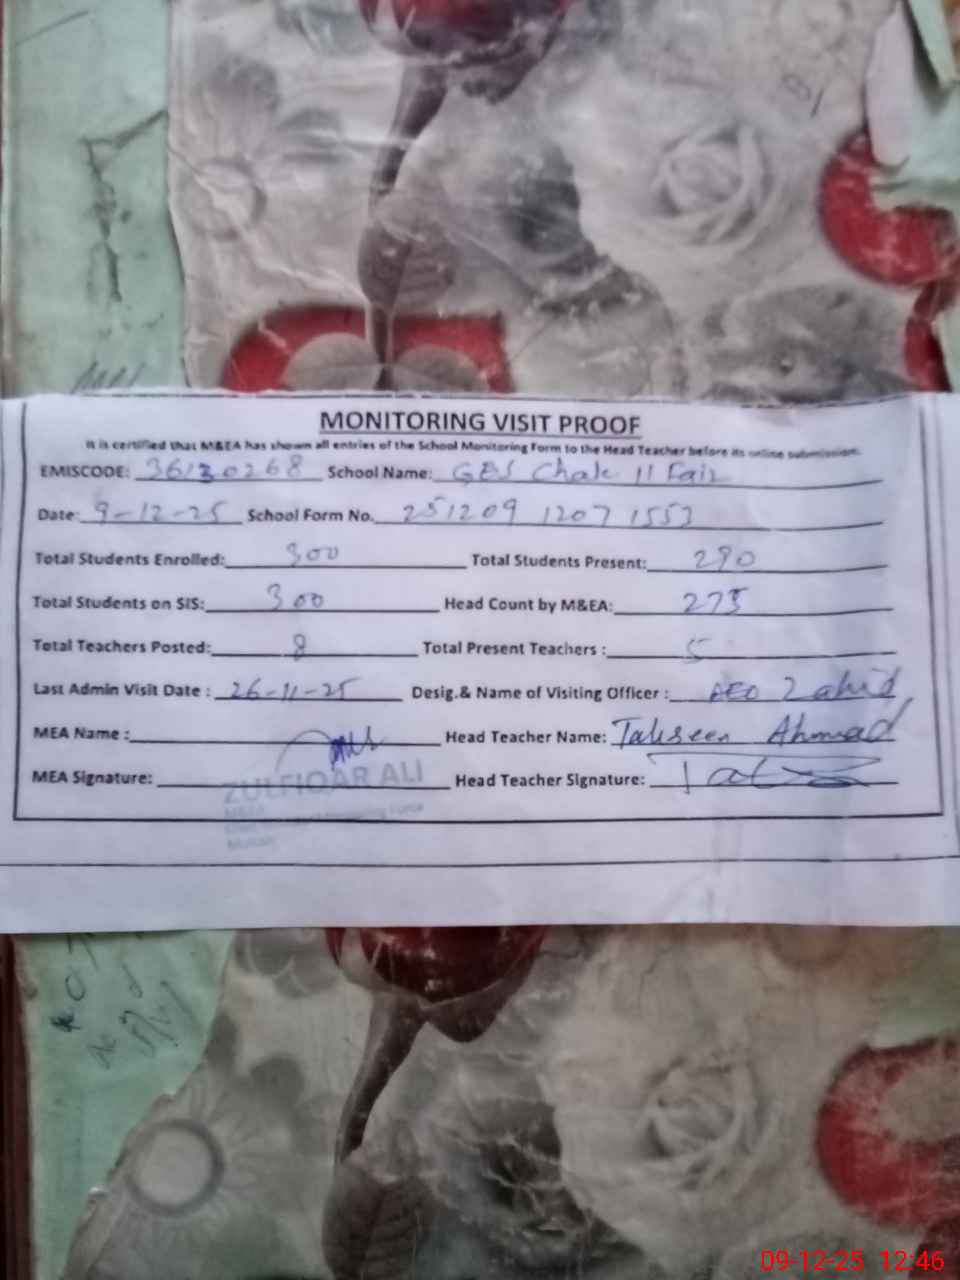 MONITORING VISIT PROOF
It is certified that M&EA has shown all entries of the School Monitoring Form to the Head Teacher before its online submission.
EMISCODE: 36130268 School Name: GES Chak 11 Faiz
Date: 9-12-25 School Form No. 251209 1207 1553
Total Students Enrolled: 300 Total Students Present: 290
Total Students on SIS: 300 Head Count by M&EA: 275
Total Teachers Posted: 8 Total Present Teachers : 5
Last Admin Visit Date : 26-11-25 Desig.& Name of Visiting Officer : AEO Zahid
MEA Name : Head Teacher Name: Tahseen Ahmad
MEA Signature: Head Teacher Signature:
ZULFIQAR ALI
M&EA
Monitoring Force
Multan
09-12-25 12:46